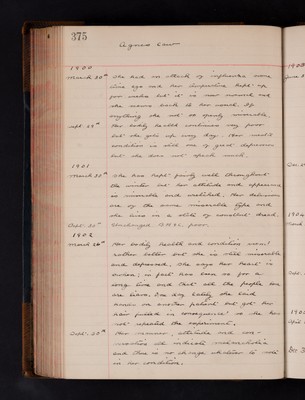 375
Agnes Law
1900
March 30th She had an attack of influenza some
time ago and her temperature kept up
for weeks but it is now normal and
she seems back to her usual. If
anything she not so openly miserable.
Sept. 29th Her bodily health continues very poor
but she gets up every day. Her mental
condition is still one of great depression
but she does not speak much.
1901
March 30th She has kept fairly well throughout
the winter but her attitude and appearance
is miserable and wretched. Her delusions
are of the same miserable type and
she lives in a state of constant dread.
Sept. 30th Unchanged. B.H. poor.
1902
March 26th Her bodily health and condition seem
rather better but she is still miserable
and depressed. She says her heart is
broken in fact has been so for a
long time and that all the people here
are [devils]. One day lately she laid
hands on another patient but got her
hair pulled in consequence so she has
not repeated the experiment.
Sept. 28th Her manner, attitude and con-
versation all indicate melancholia
and there is no change whatever to note
in her condition.
1903
1904